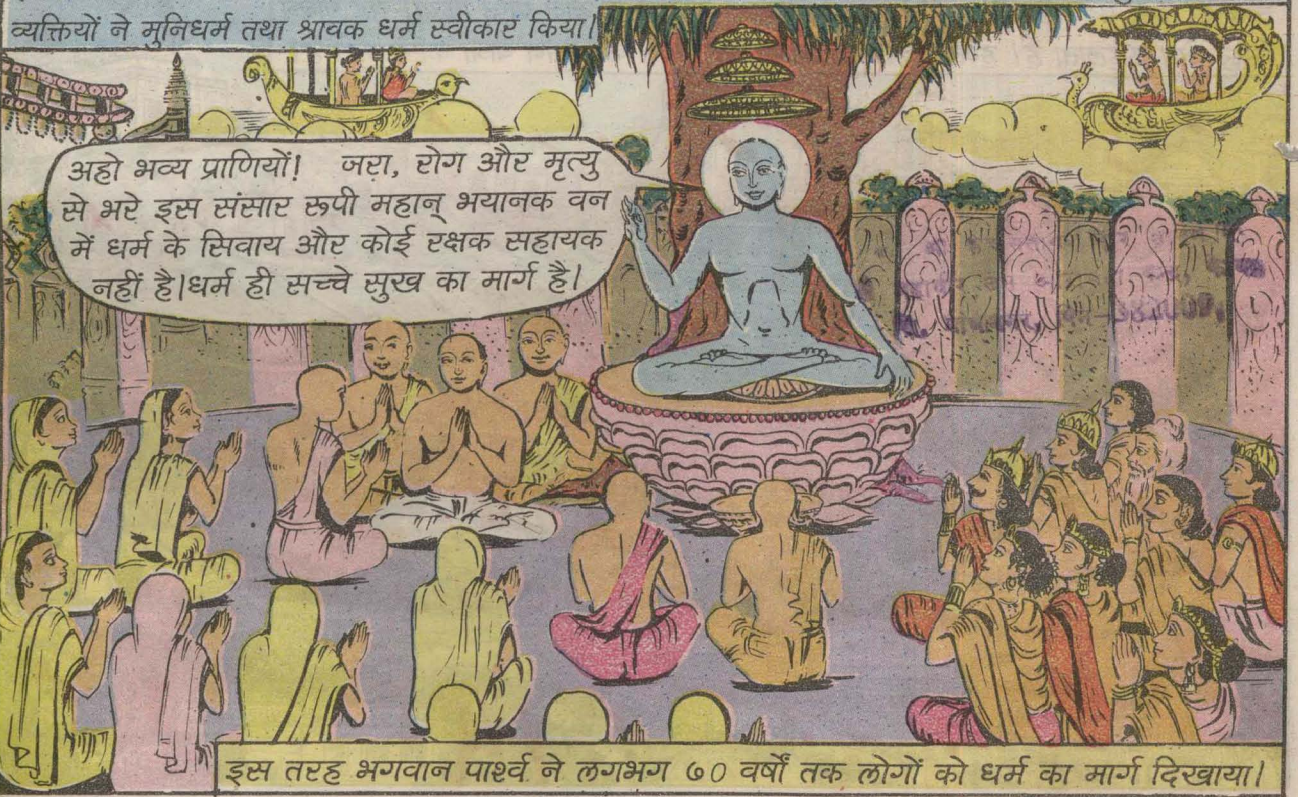 व्यक्तियों ने मुनिधर्म तथा श्रावक धर्म स्वीकार किया।
अहो भव्य प्राणियों! जरा, रोग और मृत्यु
से भरे इस संसार रूपी महान् भयानक वन
में धर्म के सिवाय और कोई रक्षक सहायक
नहीं है। धर्म ही सच्चे सुख का मार्ग है।
इस तरह भगवान पार्श्व ने लगभग ७० वर्षों तक लोगों को धर्म का मार्ग दिखाया।